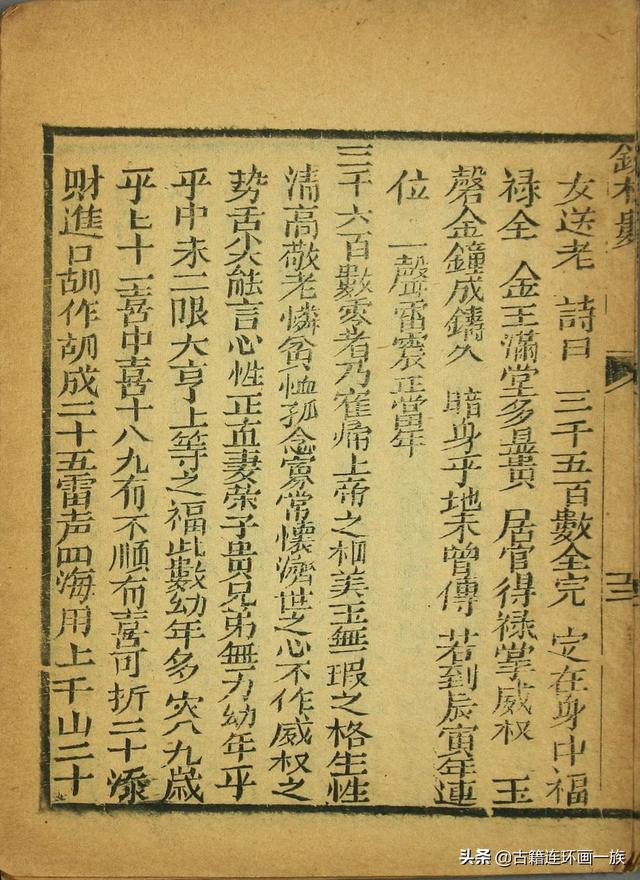 女送老 詩曰 三千五百數全完 定在身中福
禄全 金玉滿堂多显贵 居官得禄掌威权 玉
磬金鐘成鑄久 暗身乎地未曾傳 若到辰寅年連
位 一聲雷震正當年
三千六百數零者乃在帰上帝之相美玉無瑕之格生性
清高敬老憐貧恤孤念寡常懷濟世之心不作威权之
势舌尖能言心性正直妻荣子贵兄弟無力幼年平
乎中未二限大亨上等之福此數幼年多灾八九歲
乎上十一喜中喜十八九有不順有喜可折二十添
財進口胡作胡成二十五雷声四海用上千山二十
头条 @古籍连环画一族